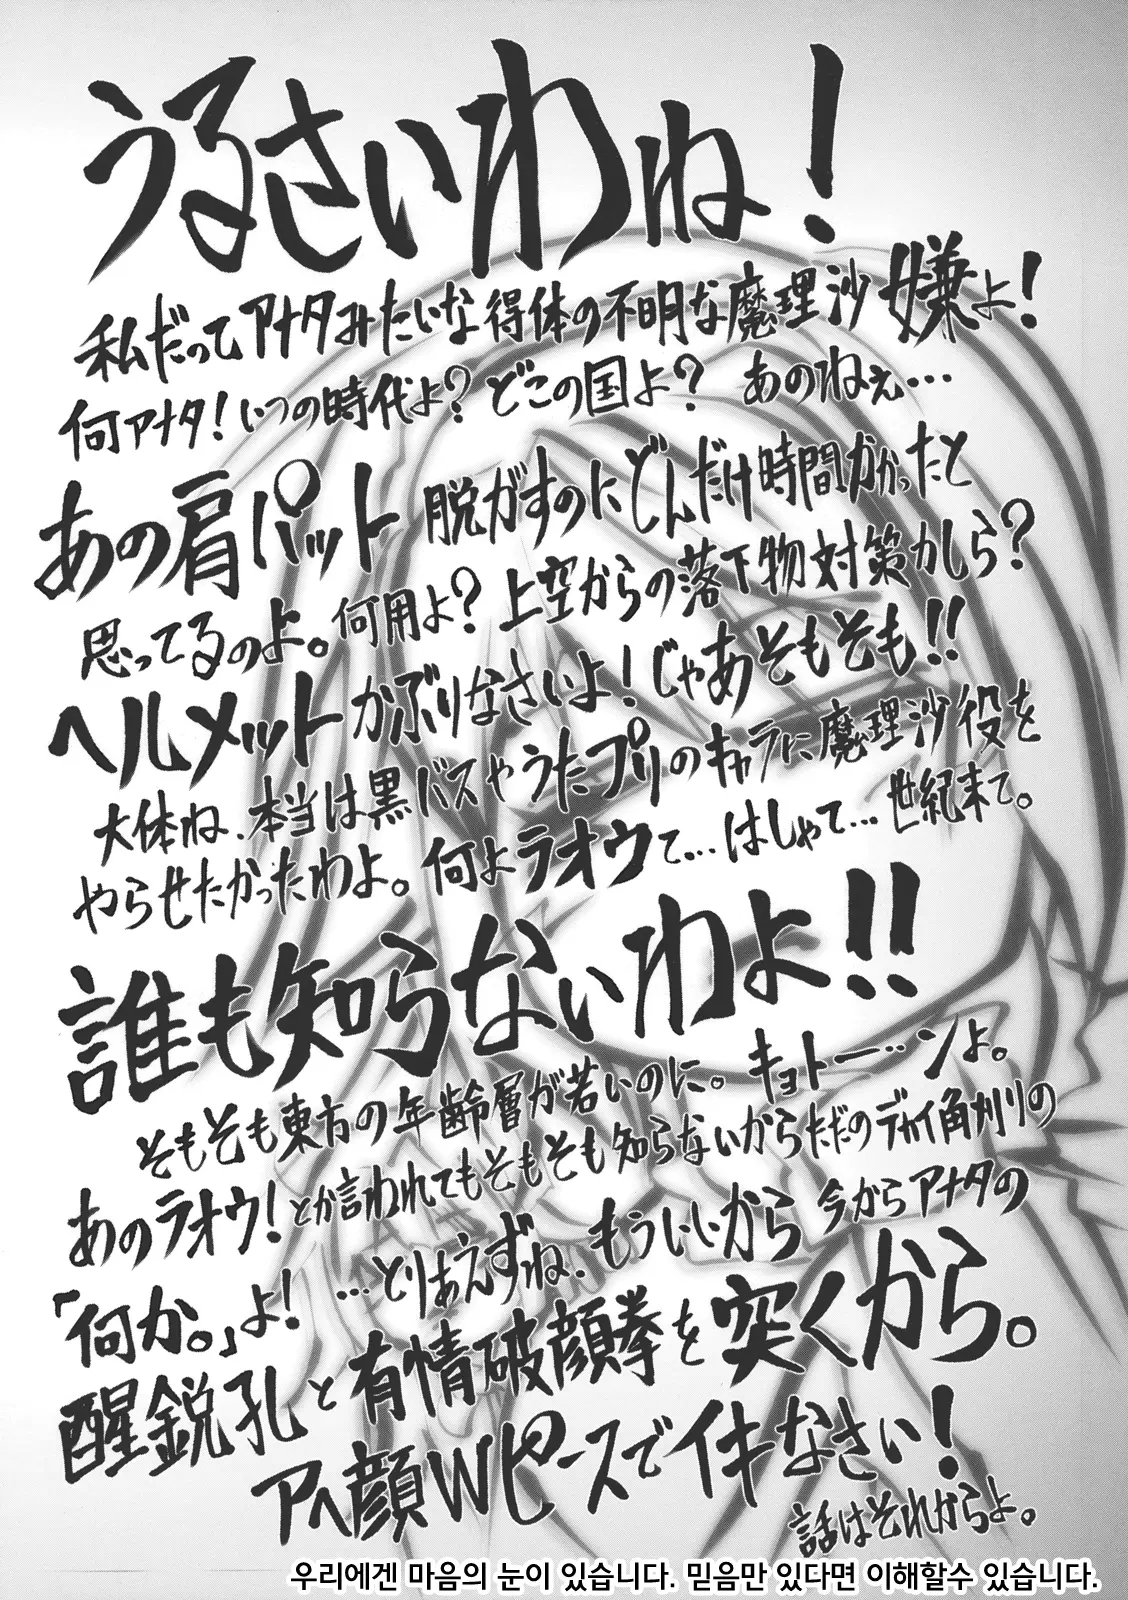 うるさいわね！
私だってアナタみたいな得体の不明な魔理沙嫌よ！
何アナタ！いつの時代よ？どこの国よ？　あのねぇ…
あの肩パット脱がすのにどんだけ時間かかったと
思ってるのよ。何用よ？上空からの落下物対策かしら？
ヘルメットかぶりなさいよ！じゃあそもそも!!
大体ね、本当は黒バスやうたプリのキャラに魔理沙役を
やらせたかったわよ。何よラオウて…はしゃて…世紀末て。
誰も知らないわよ!!
そもそも東方の年齢層が若いのに。キョトー…ンよ。
あのラオウ！とか言われてもそもそも知らないからただのデカイ角刈りの
「何か。」よ！　…とりあえずね、もういいから今からアナタの
醒鋭孔と有情破顔拳を突くから。
アヘ顔Wピースでイキなさい！
話はそれからよ。
우리에겐 마음의 눈이 있습니다. 믿음만 있다면 이해할수 있습니다.